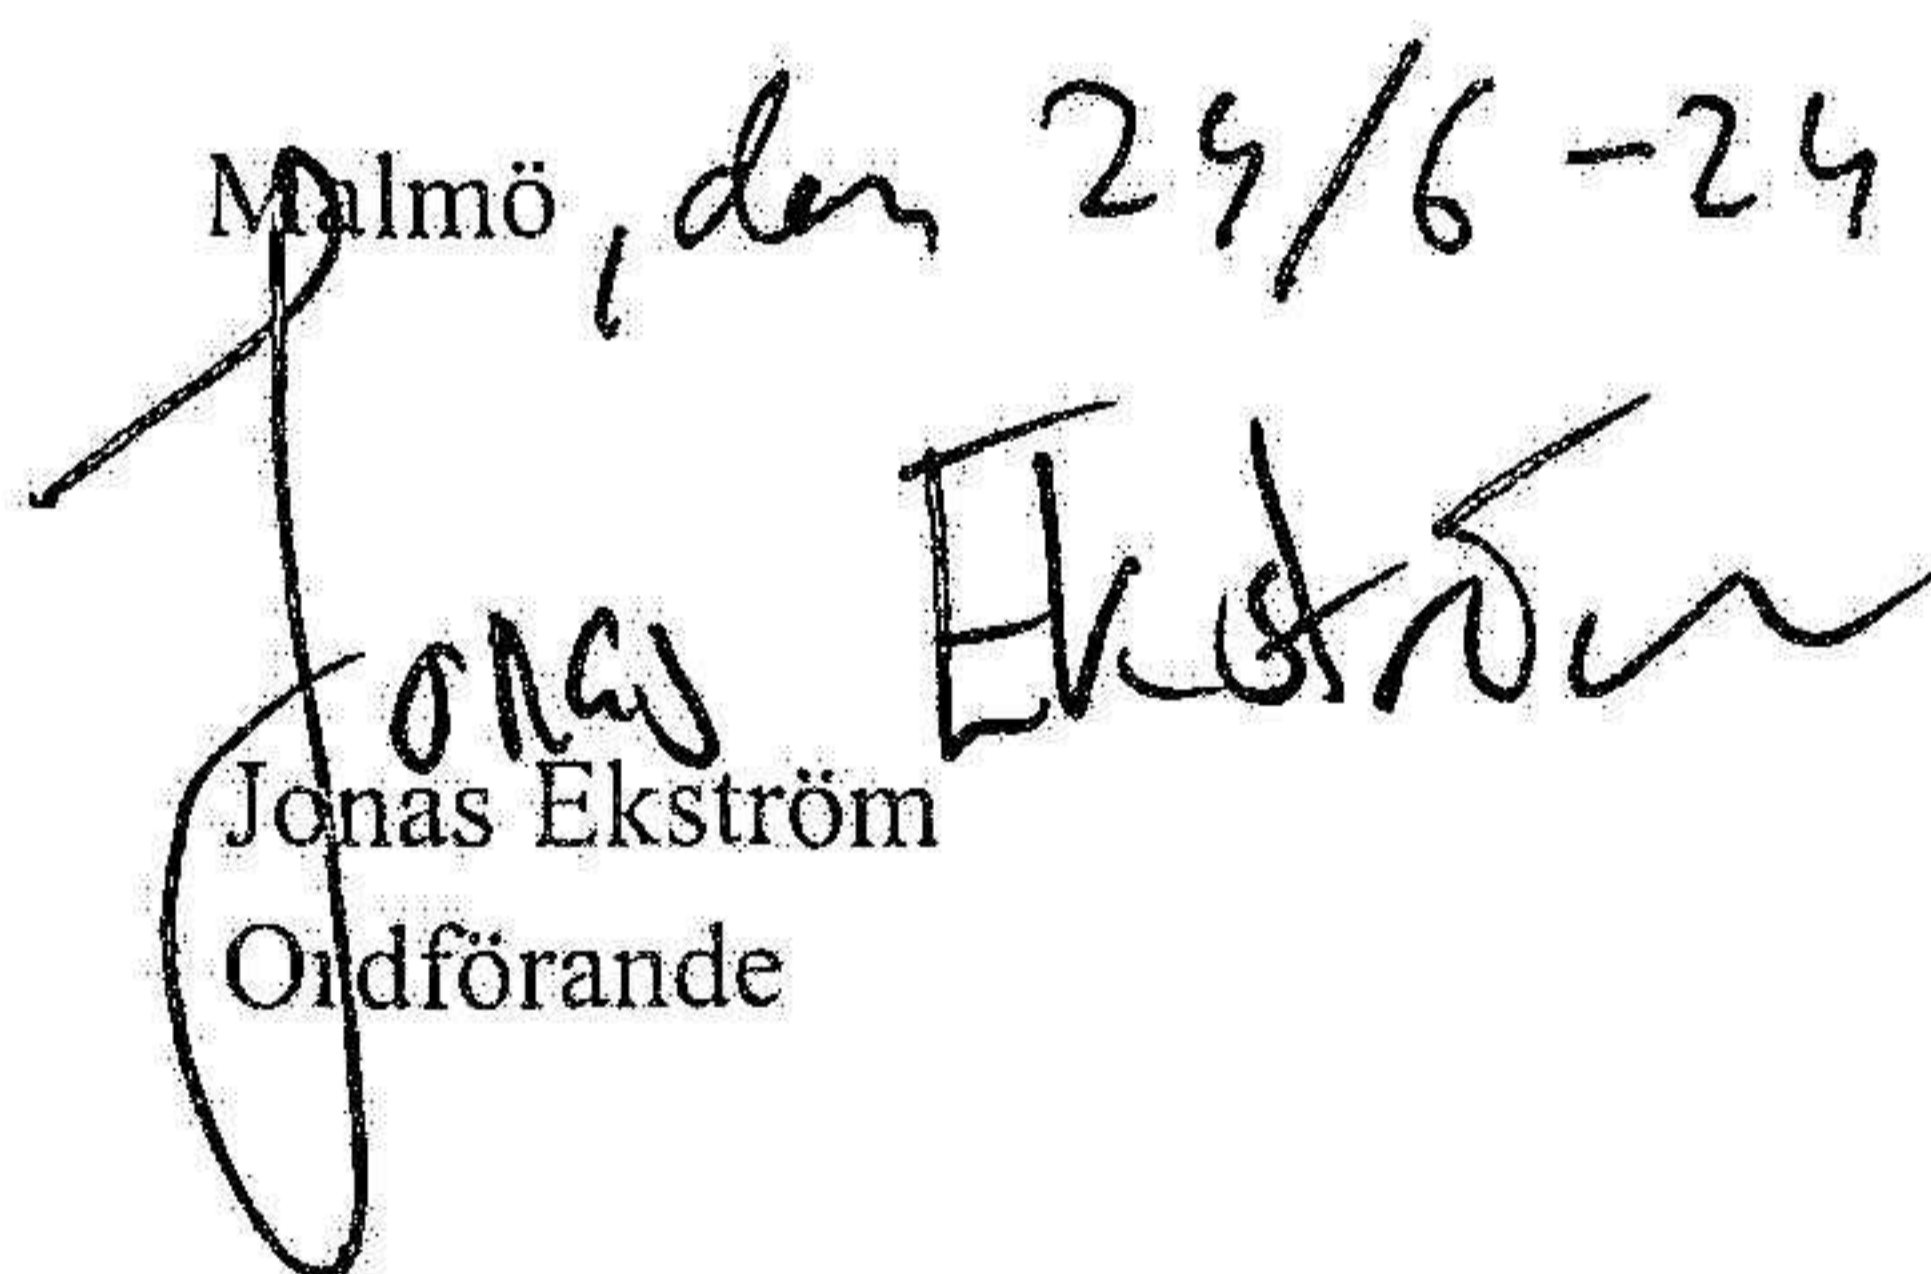 Malmö, den 24/6 -24
Jonas Ekström
Jonas Ekström
Ordförande